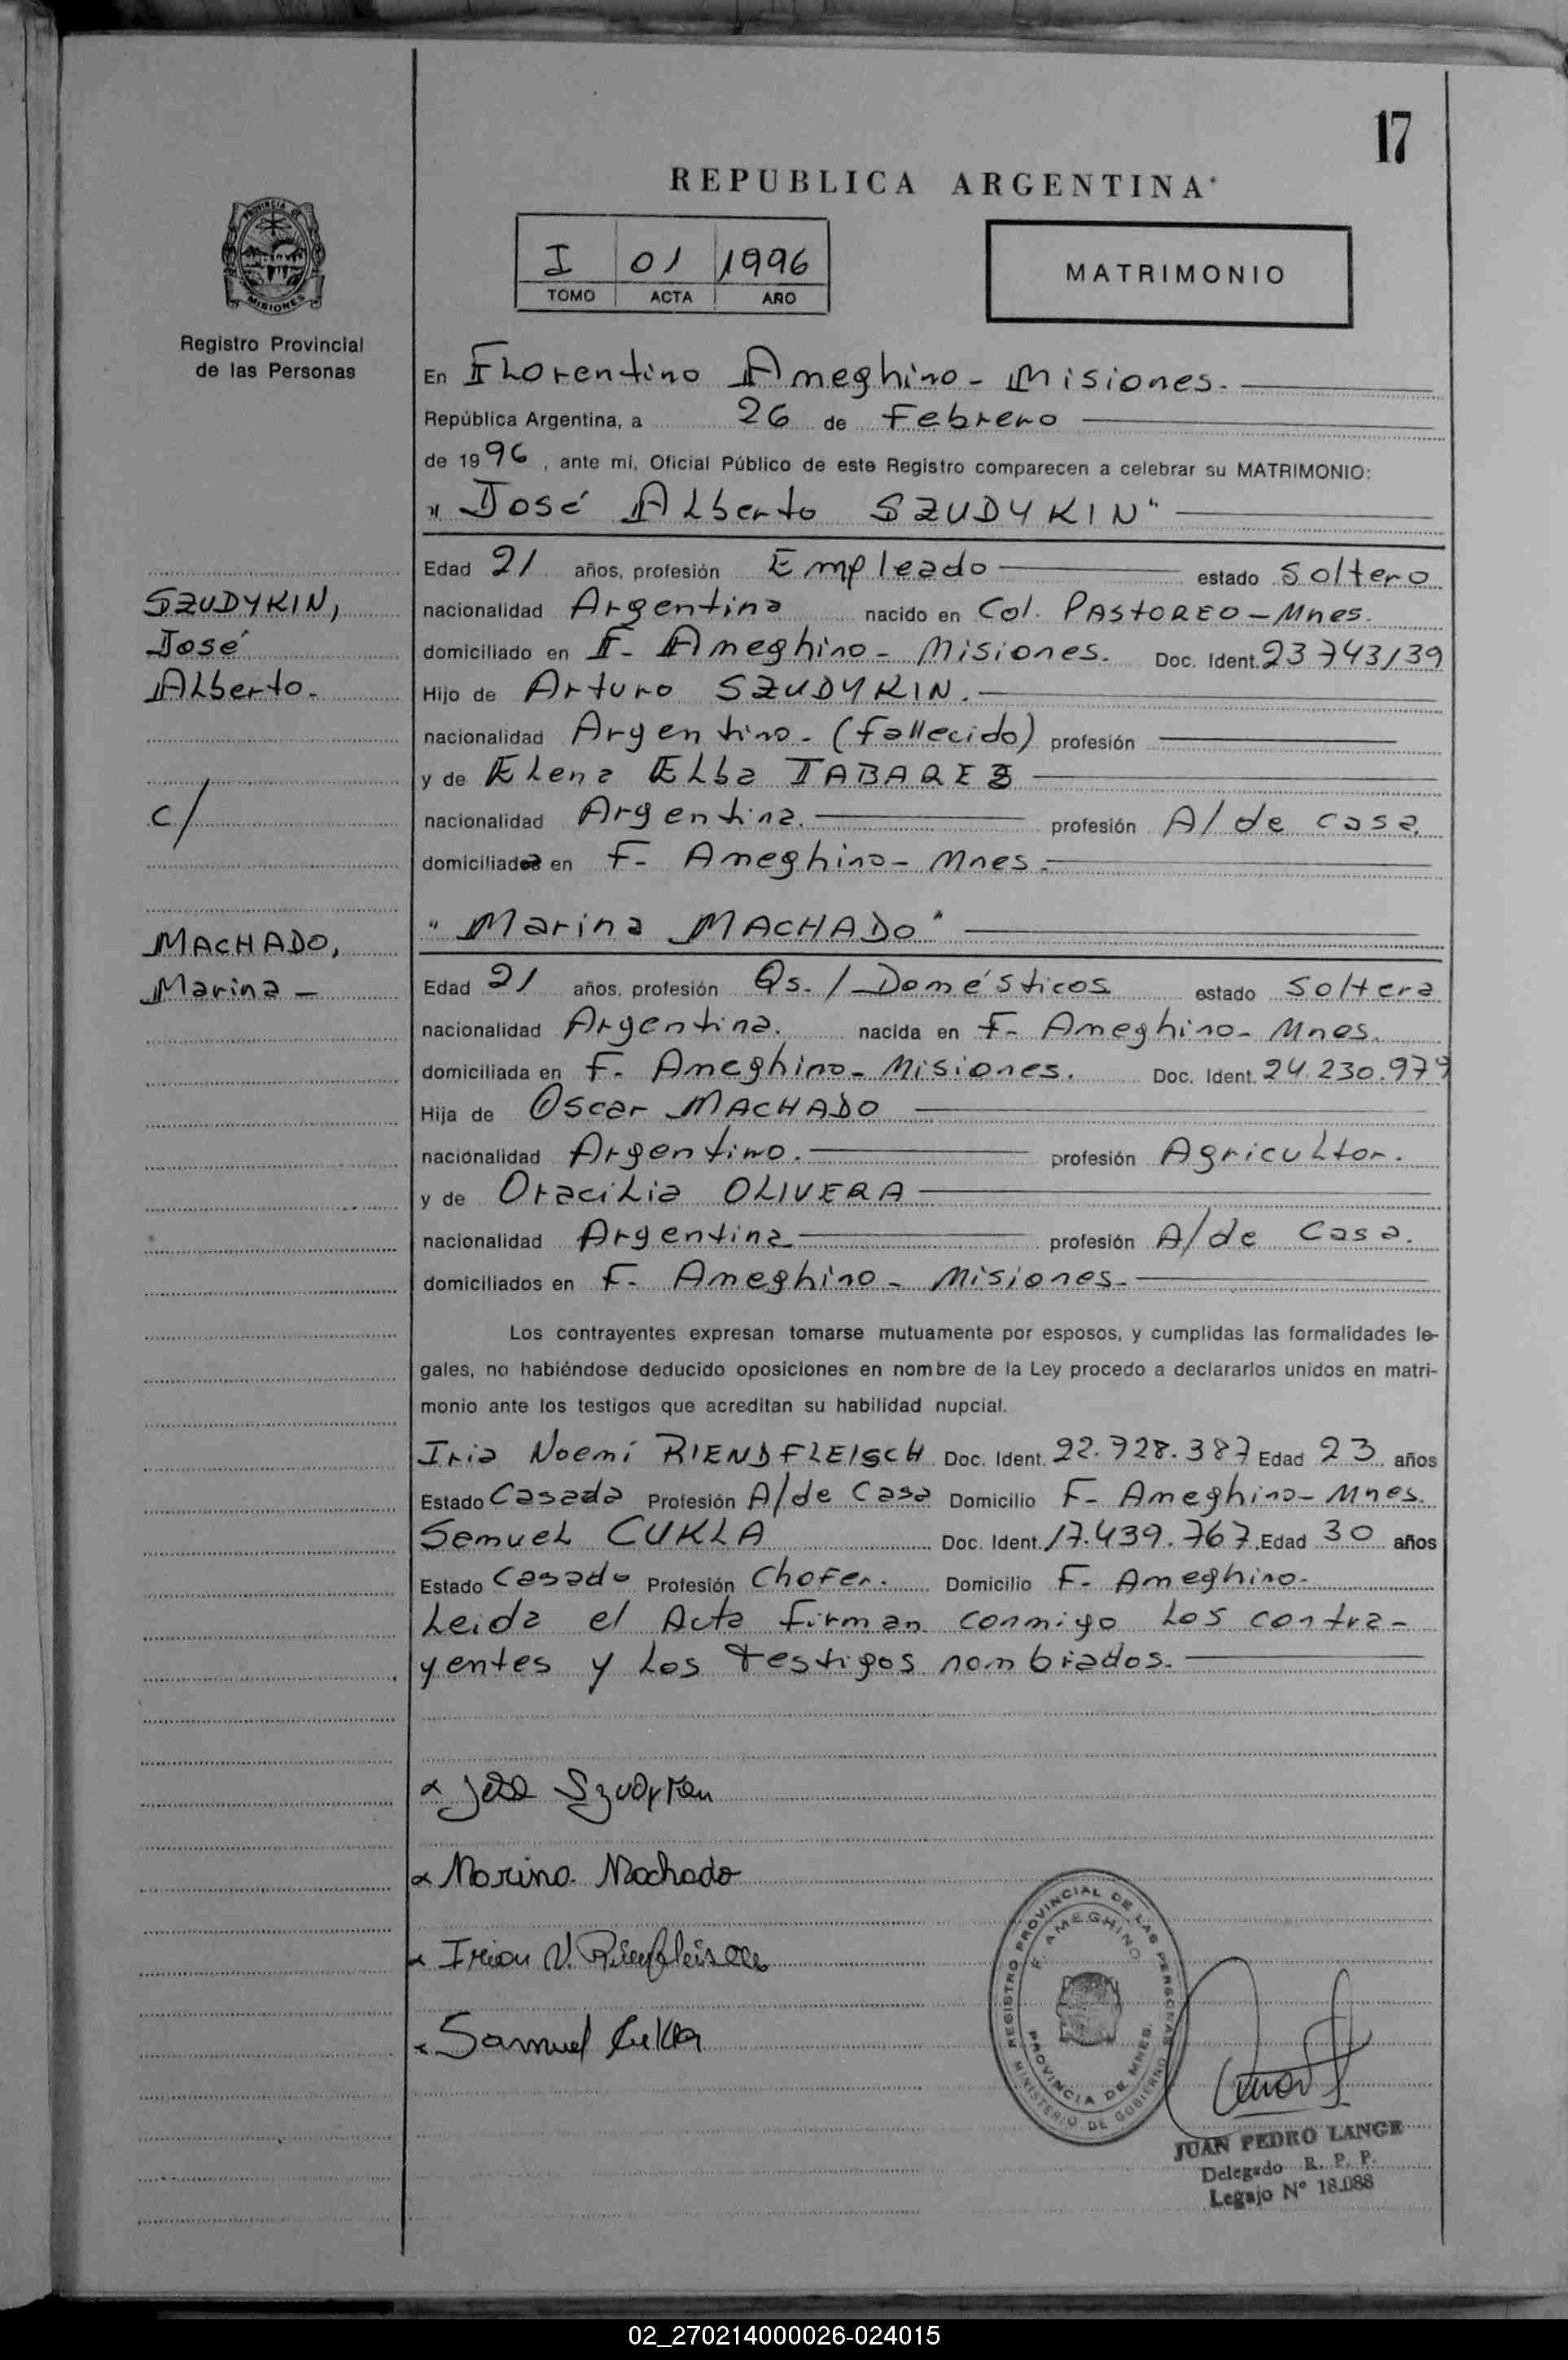 17
REPUBLICA ARGENTINA
I 01 1996
TOMO ACTA AÑO
MATRIMONIO
PROVINCIA DE
MISIONES
Registro Provincial
de las Personas
En Florentino Ameghino - Misiones.
República Argentina, a 26 de Febrero
de 1996, ante mi, Oficial Público de este Registro comparecen a celebrar su MATRIMONIO:
"José Alberto SZUDYKIN"
Edad 21 años, profesión Empleado estado Soltero
SZUDYKIN,
nacionalidad Argentina nacido en Col. PASTOREO - Mnes.
José
domiciliado en F. Ameghino - Misiones. Doc. Ident. 23743139
Alberto.
Hijo de Arturo SZUDYKIN.
nacionalidad Argentino. (fallecido) profesión
y de Elena Elba TABAREZ
c/
nacionalidad Argentina. profesión A/de casa
domiciliada en F. Ameghino - Mnes.
MACHADO,
"Marina MACHADO"
Marina -
Edad 21 años, profesión Qs./Domésticos estado Soltera
nacionalidad Argentina. nacida en F. Ameghino - Mnes.
domiciliada en F. Ameghino - Misiones. Doc. Ident. 24.230.979
Hija de Oscar MACHADO
nacionalidad Argentino. profesión Agricultor.
y de Oracilia OLIVERA
nacionalidad Argentina profesión A/de Casa.
domiciliados en F. Ameghino - Misiones.
Los contrayentes expresan tomarse mutuamente por esposos, y cumplidas las formalidades le-
gales, no habiéndose deducido oposiciones en nombre de la Ley procedo a declararlos unidos en matri-
monio ante los testigos que acreditan su habilidad nupcial.
Iria Noemí RIENDFLEISCH Doc. Ident. 22.728.387 Edad 23 años
Estado Casada Profesión A/de Casa Domicilio F. Ameghino - Mnes.
Semuel CUKLA Doc. Ident. 17.439.767 Edad 30 años
Estado Casado Profesión Chofer. Domicilio F. Ameghino.
Leida el Acta firman conmigo los contra-
yentes y los testigos nombrados.
José Szudykin
Marina Machado
Samuel Cukla
REGISTRO PROVINCIAL DE LAS PERSONAS
F. AMEGHINO
PROVINCIA DE MNES.
MINISTERIO DE GOBIERNO
JUAN PEDRO LANGE
Delegado R. P. P.
Legajo Nº 18.088
02_270214000026-024015